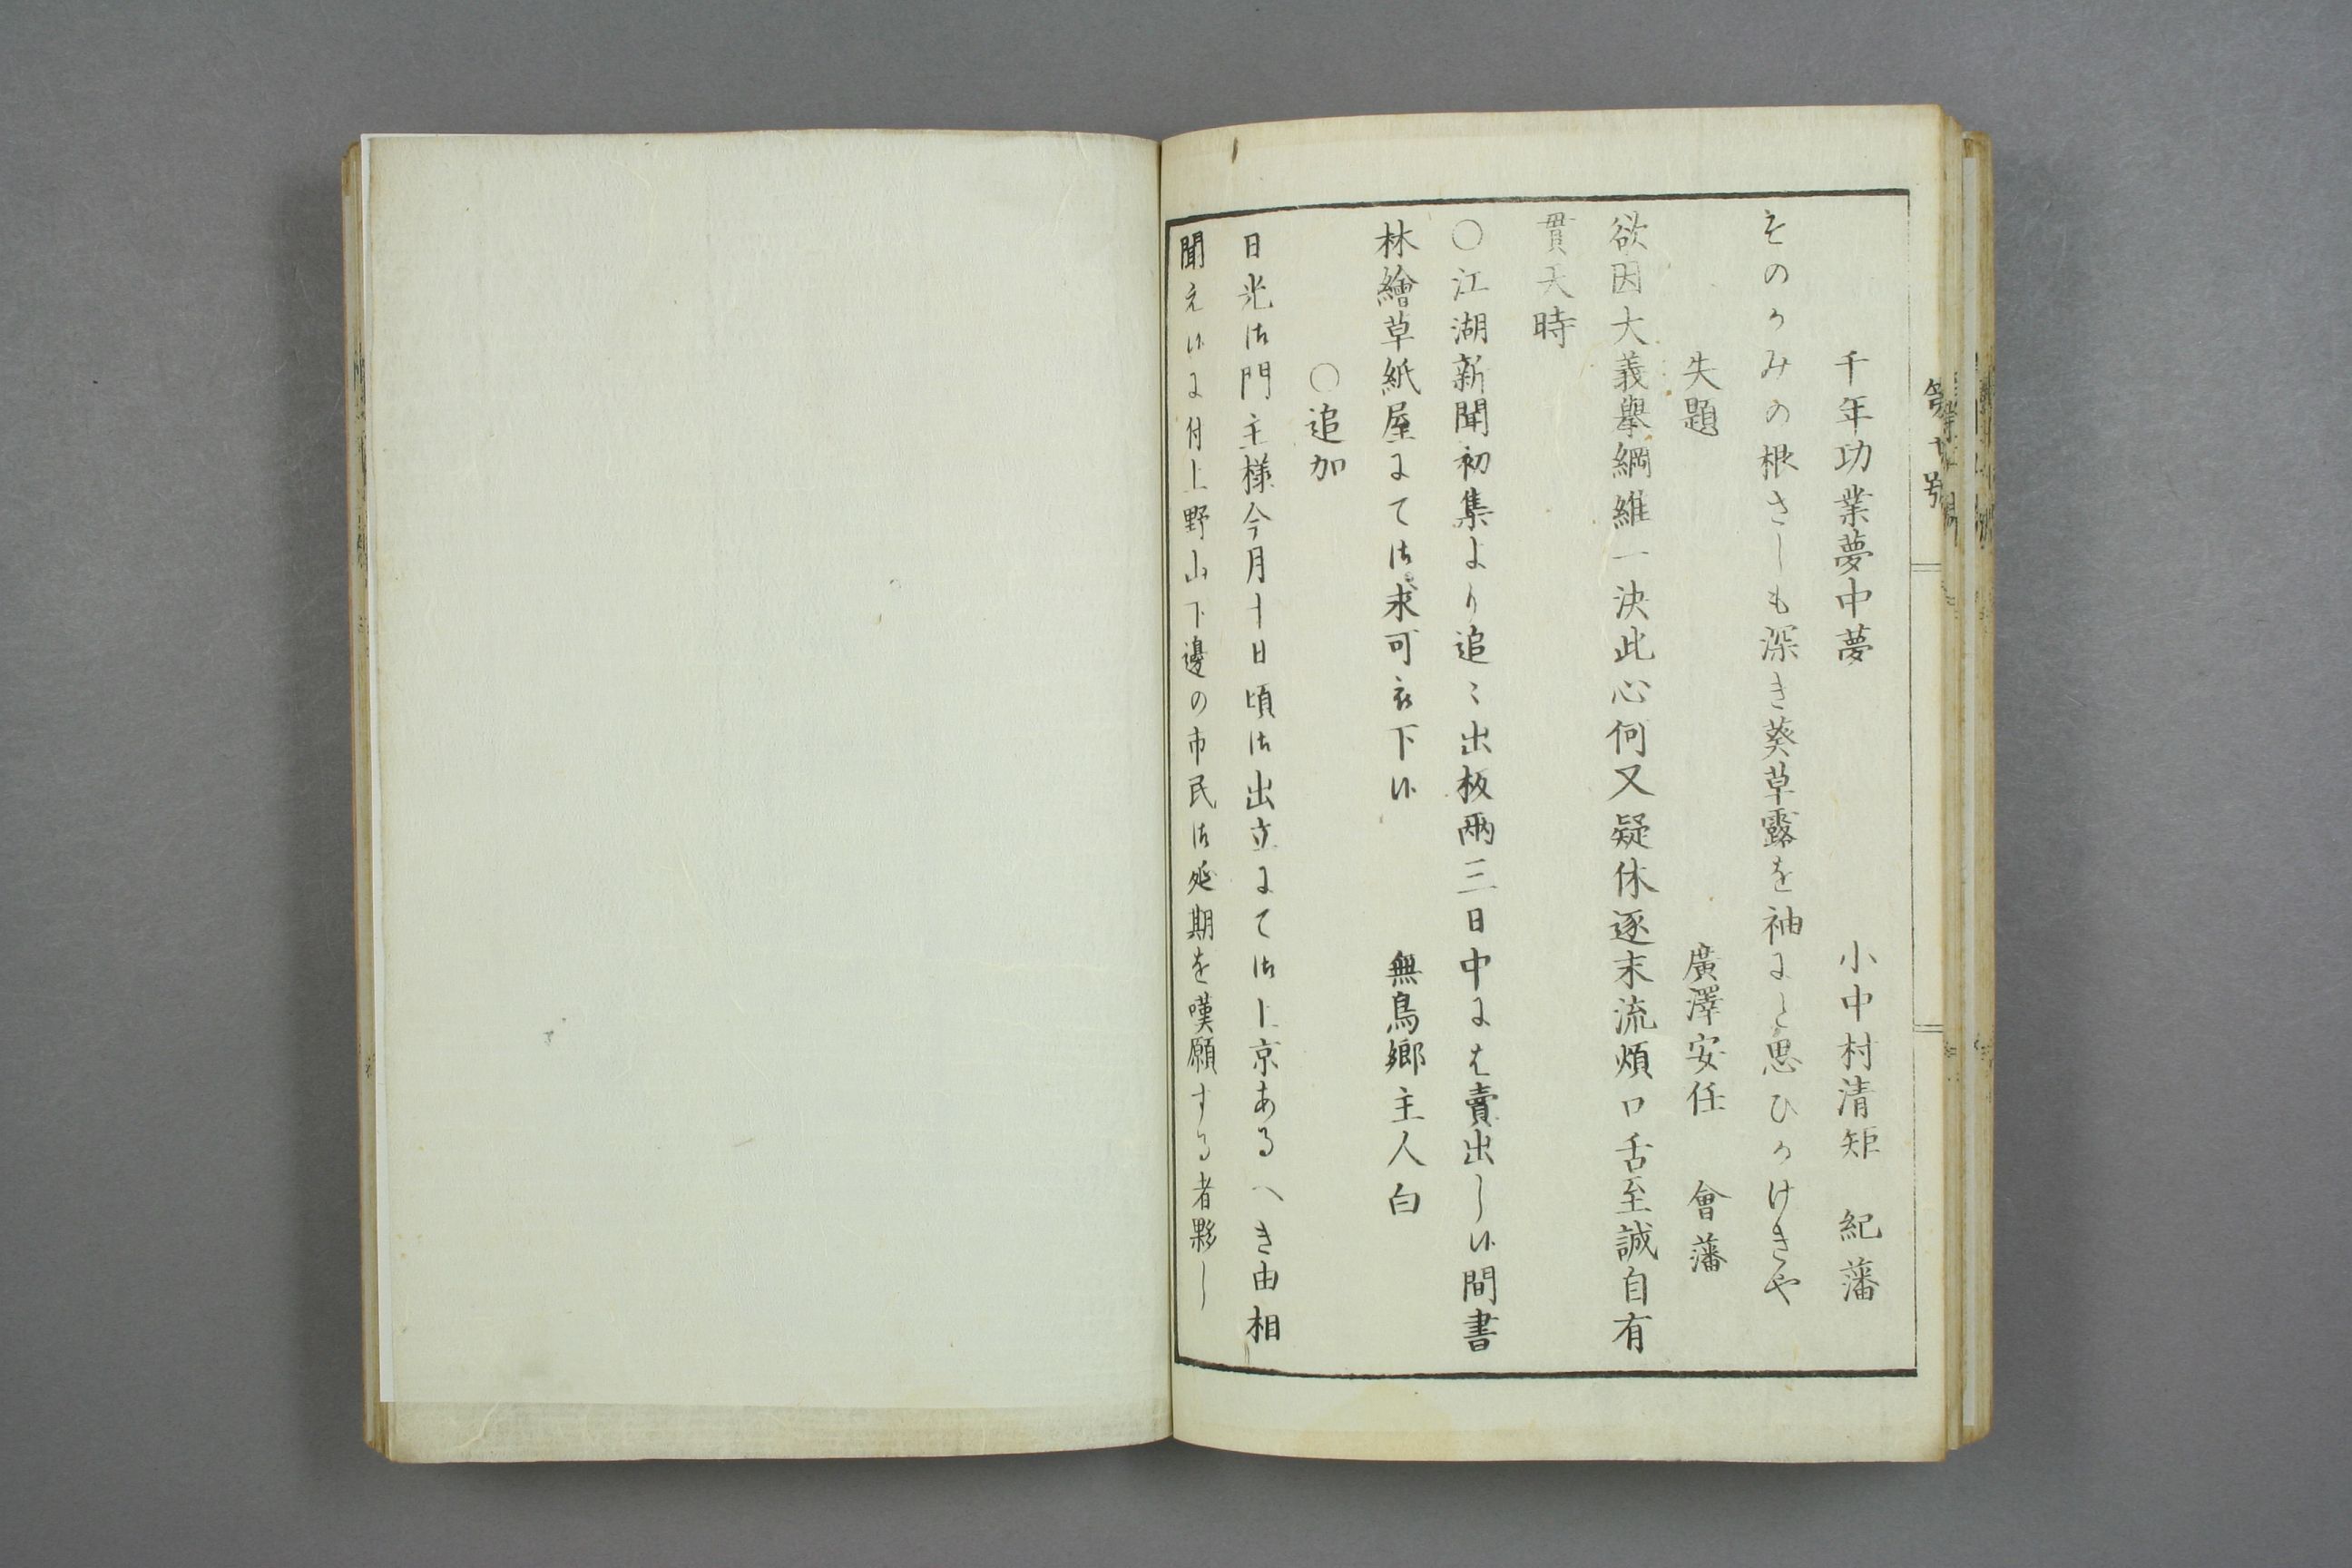 千年功業夢中夢　小中村清矩　紀藩
そのかみの根さしも深き葵草露を袖にと思ひかけきや
失題　廣澤安任　會藩
欲因大義擧綱維一決此心何又疑休逐末流煩口舌至誠自有
貫天時
〇江湖新聞初集より追〻出板兩三日中にも賣出し候間書
林繪草紙屋にて御求可被下候　無鳥鄉主人白
〇追加
日光御門主樣今月十日頃御出立にて御上京あるへき由相
聞え候に付上野山下邊の市民御延期を嘆願する者夥し